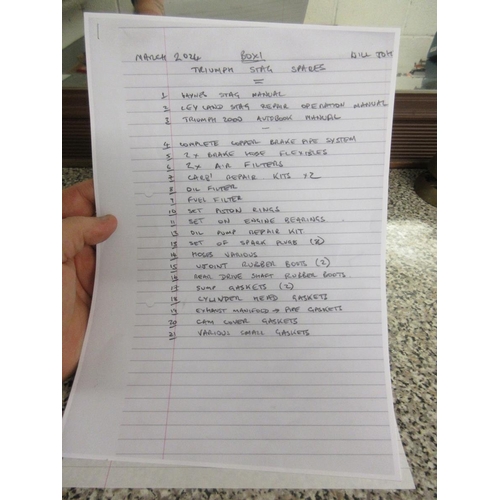 MARCH 2024 BOX1
TRIUMPH STAG SPARES
1 HAYNES STAG MANUAL
2 LEYLAND STAG REPAIR OPERATION MANUAL
3 TRIUMPH 2000 AUTOBOOK MANUAL
4 COMPLETE COPPER BRAKE PIPE SYSTEM
5 2X BRAKE HOSE FLEXIBLES
6 2X AIR FILTERS
7 CARB! REPAIR KITS X2
8 OIL FILTER
9 FUEL FILTER
10 SET PISTON RINGS
11 SET ON ENGINE BEARINGS.
12 OIL PUMP REPAIR KIT.
13 SET OF SPARK PLUGS (8)
14 HOSES VARIOUS
15 UJOINT RUBBER BOOTS (2)
16 REAR DRIVE SHAFT RUBBER BOOTS.
17 SUMP GASKETS (2)
18 CYLINDER HEAD GASKETS
19 EXHAUST MANIFOLD → PIPE GASKETS
20 CAM COVER GASKETS
21 VARIOUS SMALL GASKETS